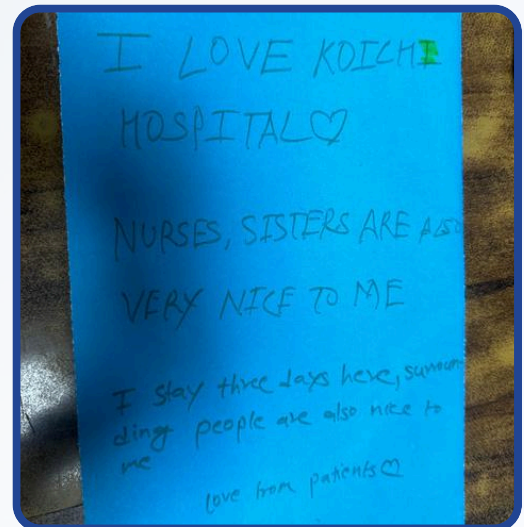 I LOVE KOICHI
HOSPITAL♡
NURSES, SISTERS ARE ALSO
VERY NICE TO ME
I stay three days here, surroun-
ding people are also nice to
me
love from patients♡